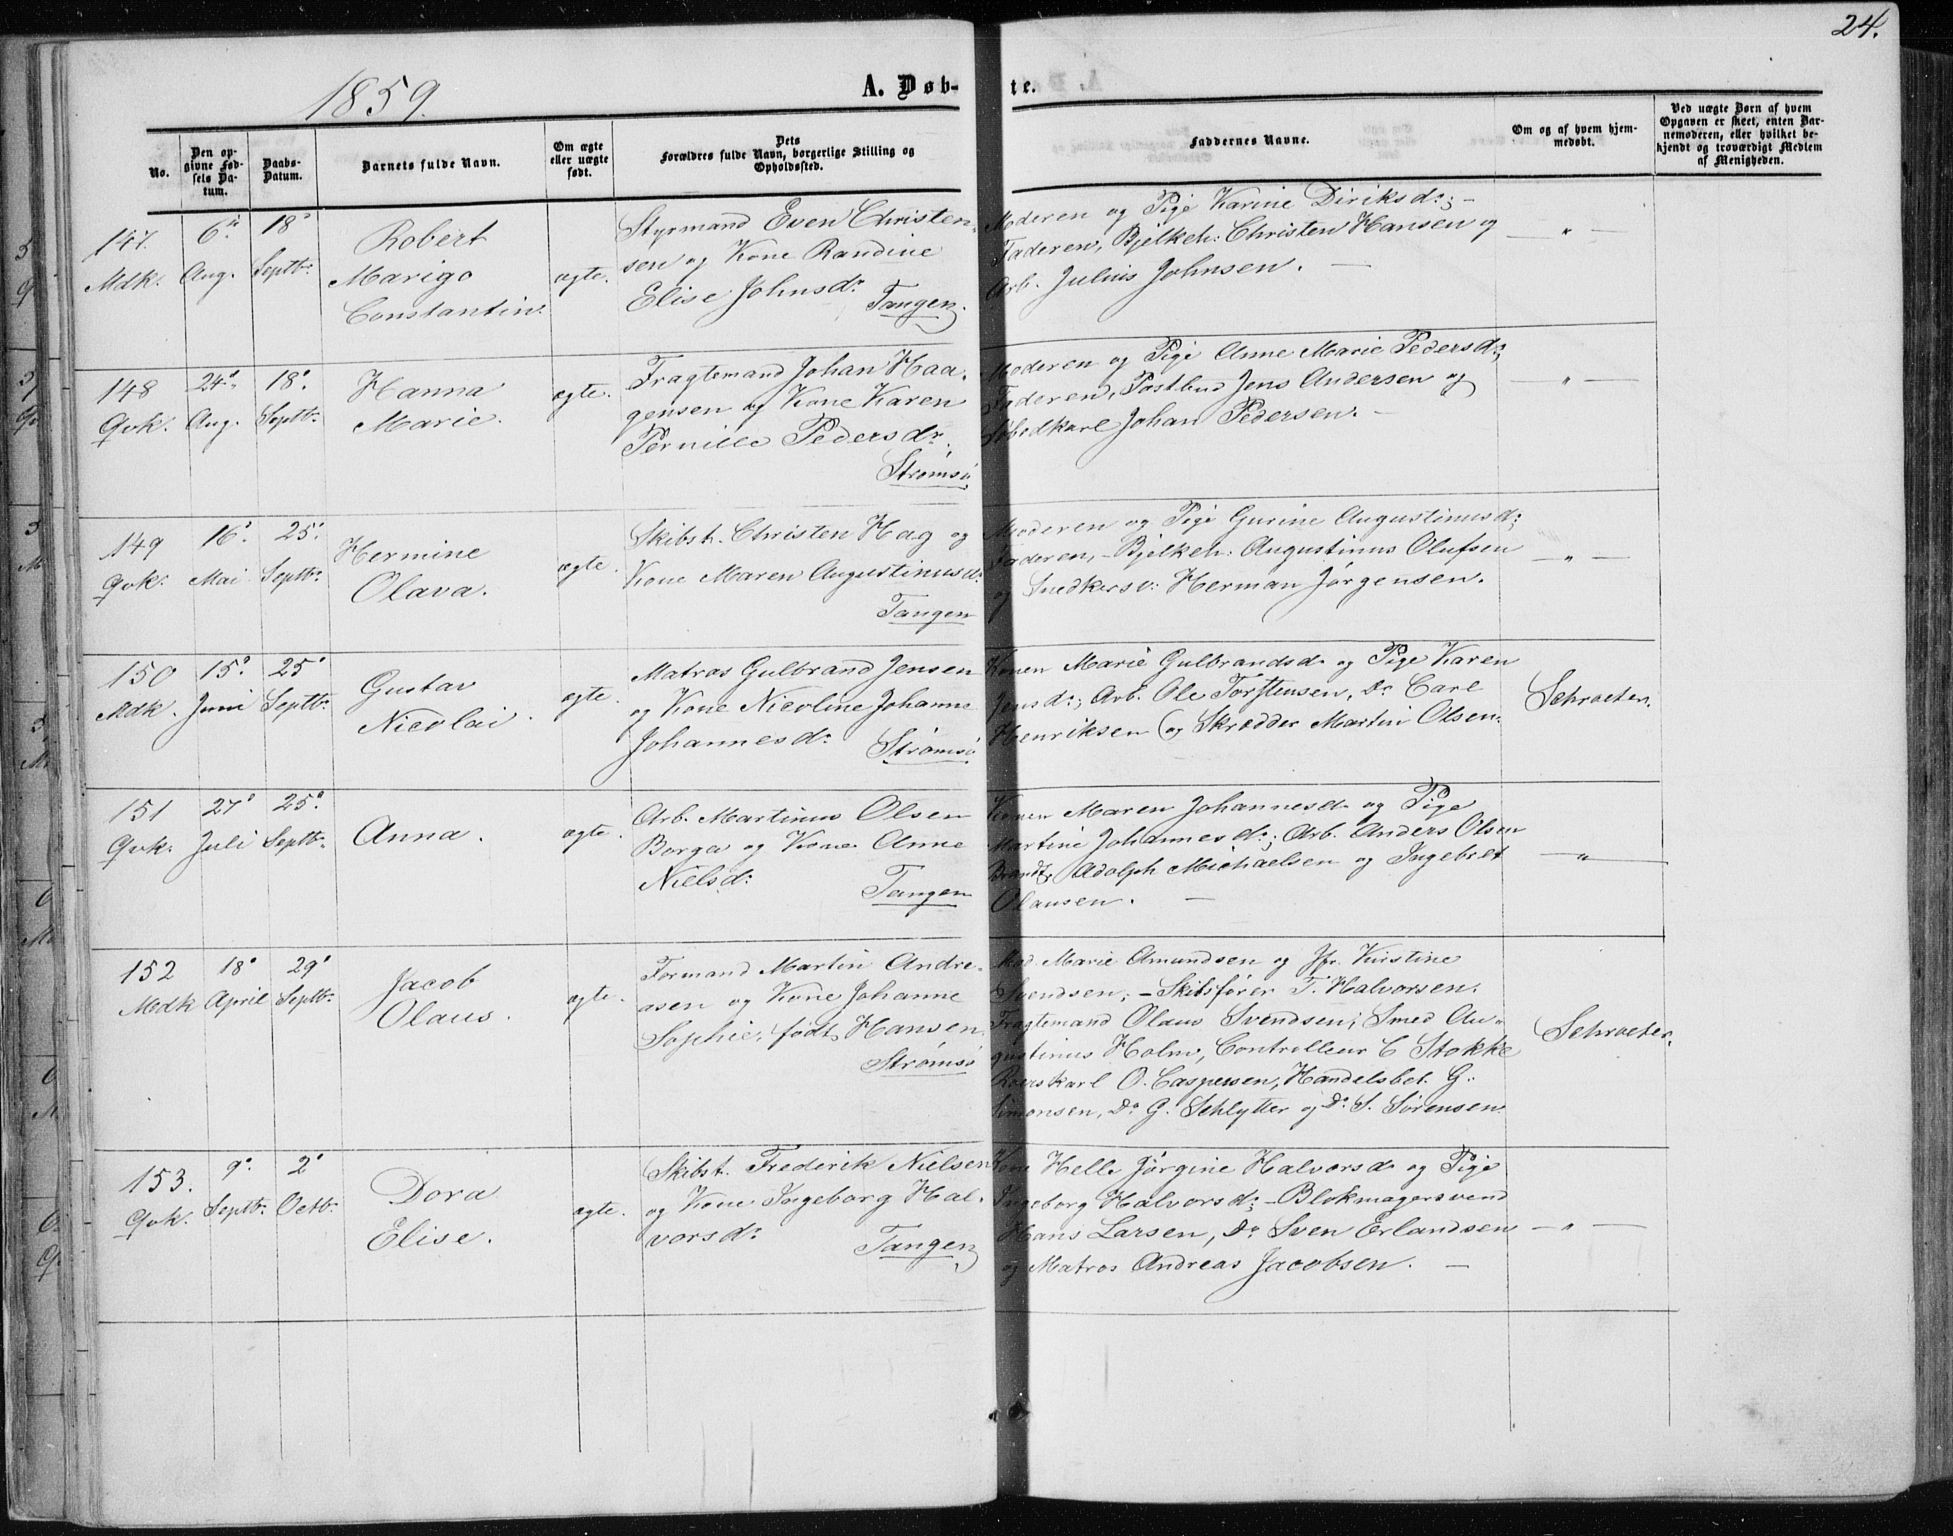 24.
1859.
A. Døb-
te.
No.
Den op-
givne Fød-
sels Da-
tum.
Daabs-
Datum.
Barnets fulde Navn.
Om ægte
eller uægte
født.
Dets
Forældres fulde Navn, borgerlige Stilling og
Opholdssted.
Faddernes Navne.
Om og af hvem hjem-
medøbt.
Ved uægte Børn af hvem
Opgaven er skeet, enten Bar-
nemoderen, eller hvilket be-
kjendt og troværdigt Medlem
af Menigheden.
147.
Mdk.
6te
Aug.
18°
Septbr.
Robert
Marigo
Constantin.
ægte.
Styrmand Even Christen-
sen og Kone Randine
Elise Johnsdr.
Tangen.
Moderen og Pige Karine Diriksdr; –
Faderen, Bjelkeh: Christen Hansen og
Arb. Julius Johnsen. –
– " –
148
Qvk.
24°
Aug.
18°
Septbr.
Hanna
Marie.
ægte.
Fragtemand Johan Haa-
gensen og Kone Karen
Pernille Pedersdr.
Strømsø
Moderen og Pige Anne Marie Pedersdr,
Faderen, Postbud Jens Andersen og
Johan Pedersen. –
– " –
149
Qvk.
16°
Mai
25°
Septbr.
Hermine
Olava.
ægte.
Skibst. Christen Hag og
Kone Maren Augustinusdr.
Tangen
Moderen og Pige Gurine Augustinusdr;
Faderen, – Bjelkeh: Augustinus Olufsen
og Snedkersv: Herman Jørgensen.
– " –
150
Mdk.
15°
Juni
25°
Septbr.
Gustav
Nicolai.
ægte.
Matros Gulbrand Jensen
og Kone Nicoline Johanne
Johannesdr.
Strømsø
Konen Marie Gulbrandsdr og Pige Karen
Jensdr; Arb. Ole Torstensen, Do Carl
Henriksen og Skrædder Martin Olsen.
Schroeter.
151
Qvk.
27°
Juli
25°
Septbr.
Anna.
ægte.
Arb. Martinus Olsen
Borga og Kone Anne
Nielsdr.
Tangen
Konen Maren Johannesdr og Pige
Martine Johannesdr; Arb. Anders Olsen
Brandt, Adolph Michaelsen og Ingebret
Olausen. –
– " –
152
Mdk
18°
April
29°
Septbr.
Jacob
Olaus.
ægte.
Formand Martin Andre-
asen og Kone Johanne
Sophie, født Hansen
Strømsø
Mad. Marie Amundsen og Jfr. Kirstine
Svendsen; – Skibsfører T. Halvorsen.
Fragtemand Olaus Svendsen; Smed Au-
gustinus Holm, Controlleur C Stokke
Roerskarl O. Caspersen, Handelsbet. G.
Simonsen, Do G. Schlytter og Do S. Sørensen.
Schroeter.
153.
Qvk.
9°
Septbr.
2°
Octbr.
Dora
Elise.
ægte.
Skibst. Frederik Nielsen
og Kone Ingeborg Hal-
vorsdr.
Tangen
Kone Helle Jørgine Halvorsdr og Pige
Ingeborg Halvorsdr; – Blokmagersvend
Hans Larsen, Do Sven Erlandsen
og Matros Andreas Jacobsen. –
– " –